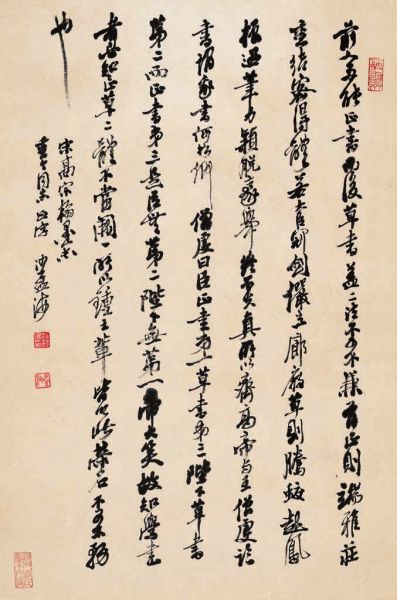 前人多能正書而後草書蓋二法不可不兼有正則端雅莊
重結密得體若大臣冠劍儼立廊廟草則騰蛟起鳳
振迅筆力穎脫豪舉終不失真所以齊高帝與王僧虔論
書謂我書何如卿僧虔曰臣正書第一草書第三陛下草書
第二而正書第三是臣無第二陛下無第一帝大笑故知學書
者必知正草二體不當闕一所以鍾王輩皆以此榮名不可不務
也
宋高宗翰墨志
同志 沙孟海